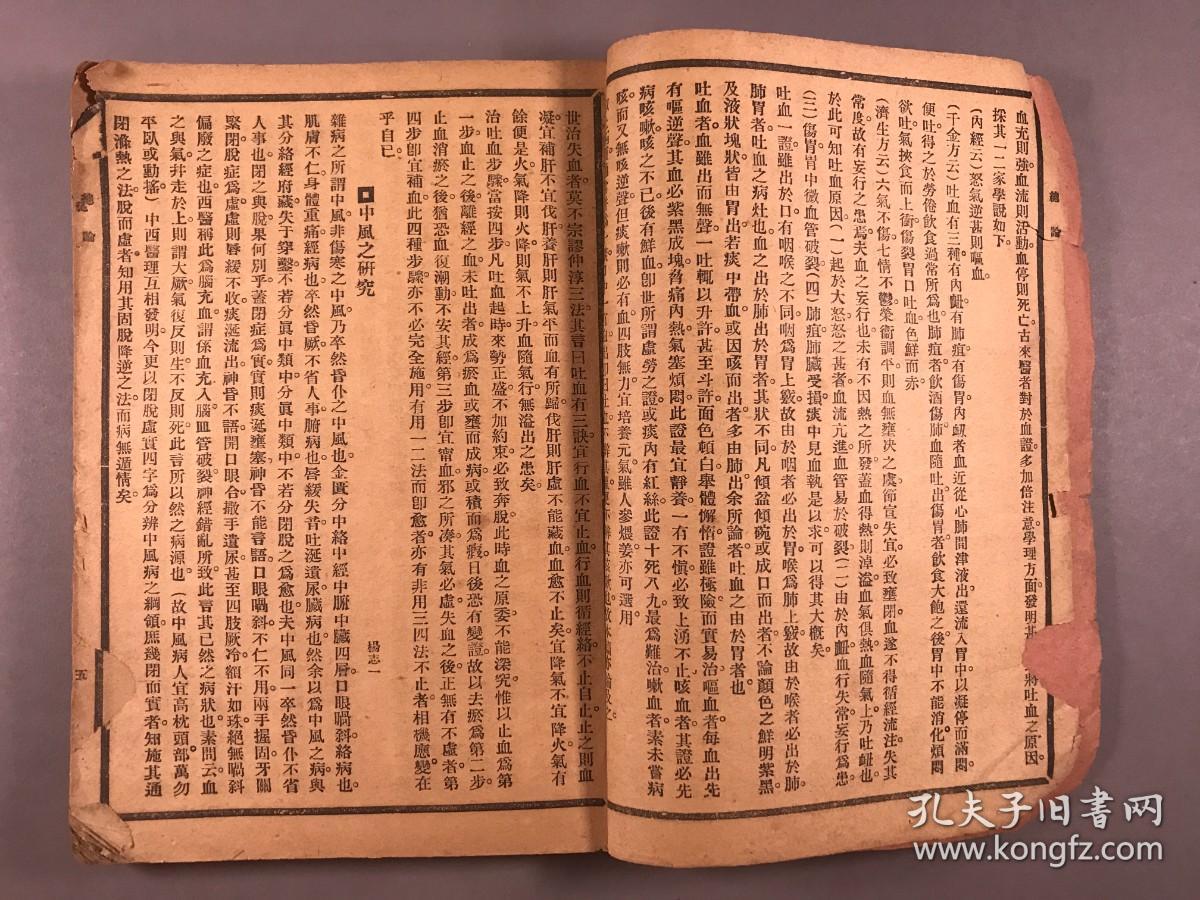 總論
血充則強血流則活動血停則死亡古來醫者對於血證多加倍注意學理方面發明甚將吐血之原因
採其一二家學說如下
(內經云)怒氣逆甚則嘔血
(千金方云)吐血有三種有內衄有肺疽有傷胃內衄者血近從心肺間津液出還流入胃中以凝停而滿悶
便吐得之於勞倦飲食過常所為也肺疽者飲酒傷肺血隨吐出傷胃者飲食大飽之後胃中不能消化煩悶
欲吐氣挾食而上衝傷裂胃口吐血色鮮而赤
(濟生方云)六氣不傷七情不鬱榮衞調平則血無壅決之虞節宣失宜必致壅閉血遂不得循經流注失其
常度故有妄行之患焉夫血之妄行也未有不因熱之所發蓋血得熱則淖溢血氣俱熱血隨氣上乃吐衄也
於此可知吐血原因(一)起於大怒怒之甚者血流亢進血管易於破裂(二)由於內衄血行失常妄行為患
(三)傷胃胃中微血管破裂(四)肺疽肺臟受損痰中見血執是以求可以得其大概矣
吐血一證雖出於口有咽喉之不同咽為胃上竅故由於咽者必出於胃喉為肺上竅故由於喉者必出於肺
肺胃者吐血之病灶也血之出於肺出於胃者其狀不同凡傾盆傾碗或成口而出者不論顏色之鮮明紫黑
及液狀塊狀皆由胃出若痰中帶血或因咳而出者多由肺出余所論者吐血之由於胃者也
吐血者血雖出而無聲一吐輒以升許甚至斗許面色頓白舉體懈惰證雖極險而實易治嘔血者每血出先
有嘔逆聲其血必紫黑成塊脅痛內熱氣塞煩悶此證最宜靜養一有不愼必致上湧不止咳血者其證必先
病咳嗽咳之不已後有鮮血卽世所謂虛勞之證或痰內有紅絲此證十死八九最為難治嗽血者素未嘗病
咳而又無咳逆聲但痰嗽則必有血四肢無力宜培養元氣雖人參煨姜亦可選用
世治失血者莫不宗謬仲淳三法其言曰吐血有三訣宜行血不宜止血行血則循經絡不止自止止之則血
凝宜補肝不宜伐肝養肝則肝氣平而血有所歸伐肝則肝虛不能藏血血愈不止矣宜降氣不宜降火氣有
餘便是火氣降則火降則氣不上升血隨氣行無溢出之患矣
治吐血步驟當按四步凡吐血起時來勢正盛不加約束必致奔脫此時血之原委不能深究惟以止血為第
一步血止之後離經之血未吐出者成為瘀血或壅而成病或積而為瘕日後恐有變證故以去瘀為第二步
止血消瘀之後猶恐血復潮動不安其經第三步卽宜甯血血邪之所湊其氣必虛失血之後正無有不虛者第
四步卽宜補血此四種步驟亦不必完全施用有用一二法而卽愈者亦有非用三四法不止者相機應變在
乎自已
中風之硏究
楊志一
雜病之所謂中風非傷寒之中風乃卒然昏仆之中風也金匱分中絡中經中腑中臟四層口眼喎斜絡病也
肌膚不仁身體重痛經病也卒然昏厥不省人事腑病也唇緩失音吐涎遺尿臟病也然余以為中風之病與
其分絡經府藏失于穿鑿不若分眞中類中分眞中類中不若分閉脫之為愈也夫中風同一卒然昏仆不省
人事也閉之與脫果何別乎蓋閉症為實實則痰涎壅塞神昏不能言語口眼喎斜不仁不用兩手握固牙關
緊閉脫症為虛虛則唇緩不收痰涎流出神昏不語開口眼合撒手遺尿甚至四肢厥冷額汗如珠絕無喎斜
偏廢之症也西醫稱此為腦充血謂係血充入腦血管破裂神經錯亂所致此言其已然之病狀也素問云血
之與氣幷走於上則謂大厥氣復反則生不反則死此言所以然之病源也(故中風病人宜高枕頭部萬勿
平臥或動搖)中西醫理互相發明今更以閉脫虛實四字為分辨中風病之綱領庶幾閉而實者知施其通
閉滌熱之法脫而虛者知用其固脫降逆之法而病無遁情矣
論
五
孔夫子旧书网
www.kongfz.com